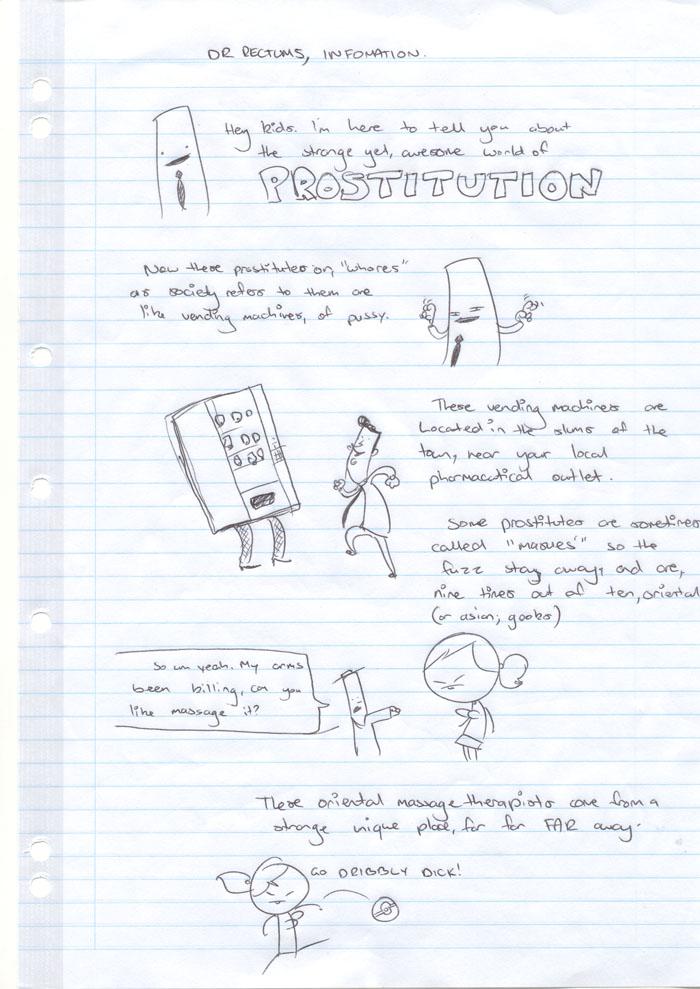 DR RECTUMS, INFOMATION.
Hey kids. I'm here to tell you about
the strange yet, awesome world of
PROSTITUTION
Now these prostitutes or, "whores"
as society refers to them are
like vending machines, of pussy.
These vending machines are
Located in the slums of the
town, near your local
pharmacutical outlet.
Some prostitutes are sometimes
called "masues" so the
fuzz stay away, and are,
nine times out of ten, oriental
(or asian; gooks)
So um yeah. My arms
been killing, can you
like massage it?
These oriental massage therapists come from a
strange unique place, far far FAR away.
GO DRIBBLY DICK!